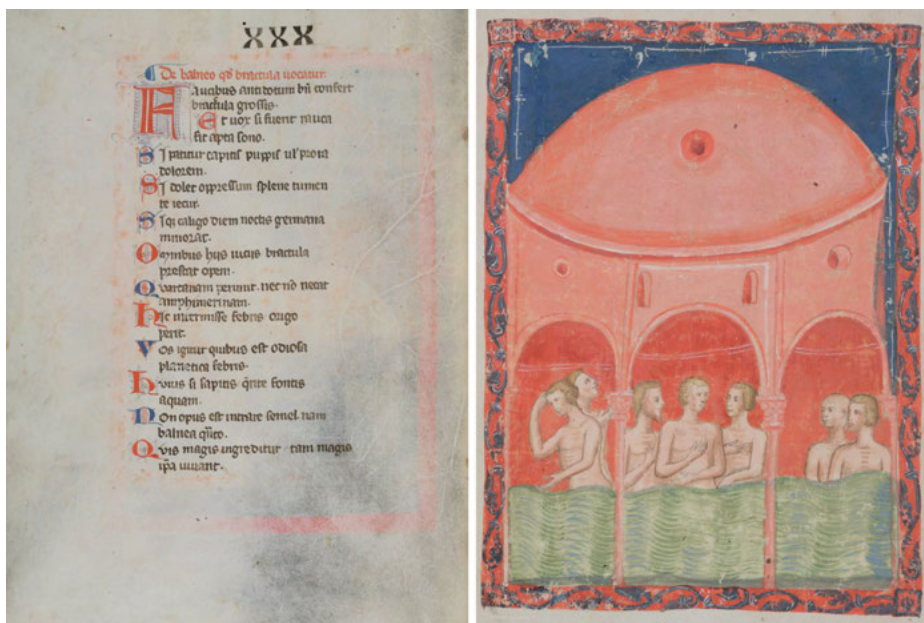 XXX
De balneo qd bractula uocatur
Faucibus antidotum bn confert
bractula grossis.
Et uox si fuerit rauca
fit apta sono.
Si patitur capitis puppis ul' prora
dolorem.
Si dolet oppressum splene tumen
te iecur.
Si qi caligo diem noctis germana
minorat.
Omnibus hijs uicijs bractula
prestat opem.
Quartanam perimit. nec no necat
amphimerinam.
Hic intermisse febris origo
perit.
Vos igitur quibus est odiosa
planetica febris.
Huius si sapitis qrite fontis
aquam.
Non opus est intrare semel nam
balnea qnto.
Quis magis ingreditur. tam magis
ipa iuuant.